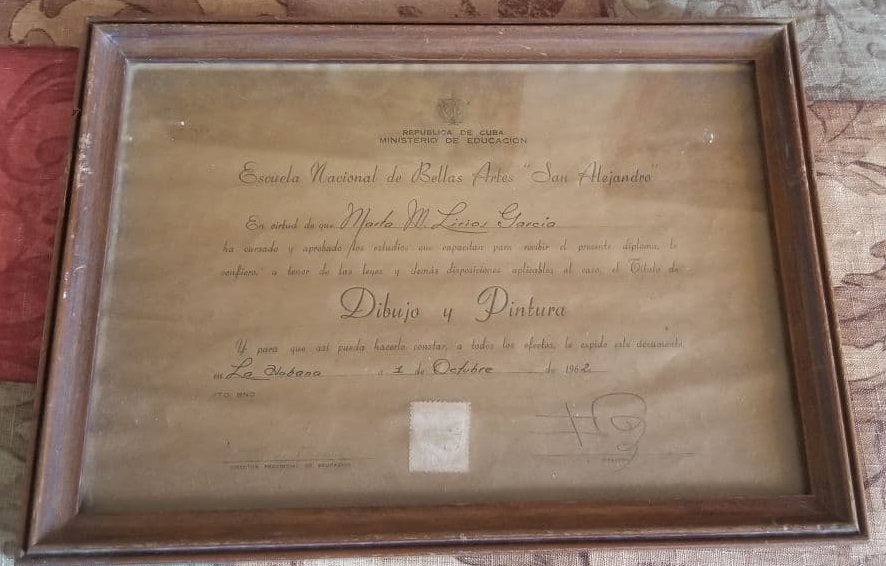 REPUBLICA DE CUBA
MINISTERIO DE EDUCACION
Escuela Nacional de Bellas Artes "San Alejandro"
En virtud de que Marta M. Lirios García
ha cursado y aprobado los estudios que capacitan para recibir el presente diploma, le
confiero, a tenor de las leyes y demás disposiciones aplicables al caso, el Título de
Dibujo y Pintura
Y para que así pueda hacerlo constar, a todos los efectos, le expido este documento
en La Habana a 1 de Octubre de 1962
DIRECTOR PROVINCIAL DE EDUCACION